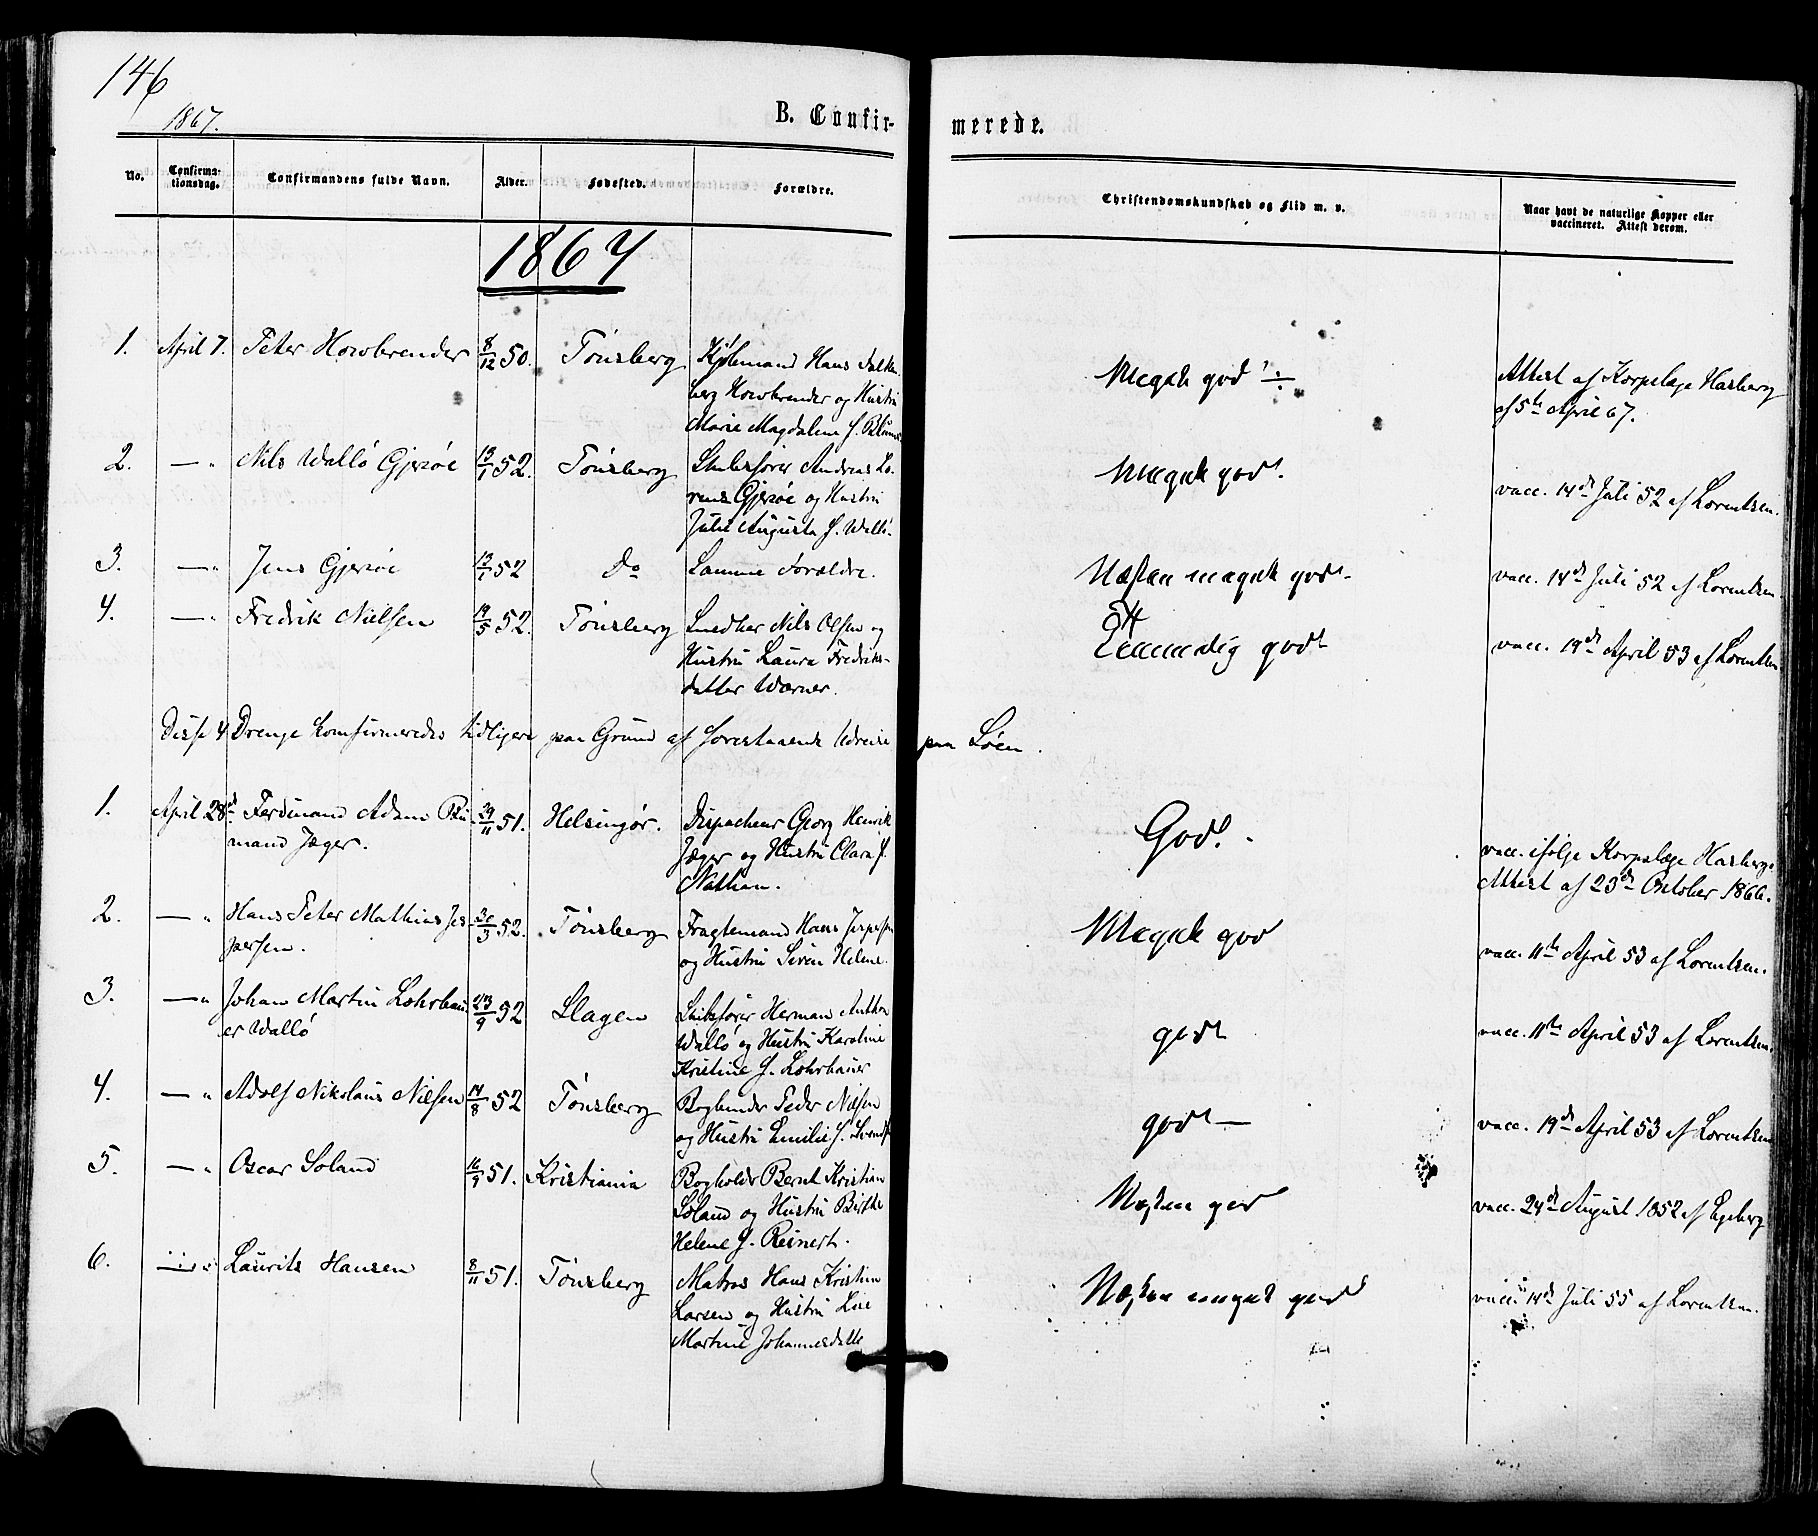 146
1867.
B. Confir-
merede.
No.
Confirma-
tionsdag.
Confirmandens fulde Navn.
Alder.
Fødested.
Forældre.
Christendomskundskab og Flid m. v.
Naar havt de naturlige Kopper eller
vaccineret. Attest derom.
1867
1. April 7. Peter Howbrender 8/12 50. Tönsberg Kjöbmand Hans Falken-
berg Howbrender og Hustru
Marie Magdalene f.
Meget god
Attest af Korpslæge Hasberg
af 5te April 67.
2. — " Nils Wallö Gjersöe 13/1 52. Tönsberg Skibsförer Andreas Lo-
rens Gjersöe og Hustru
Julie Augusta f. Wallö.
Meget godt.
vacc. 14de Juli 52 af Lorentsen.
3. — " Jens Gjersöe 13/1 52 Do Samme Forældre.
Næsten meget godt.
vacc. 14de Juli 52 af Lorentsen.
4. — " Fredrik Nielsen 19/5 52. Tönsberg Smedker Nils Olsen og
Hustru Laura Fredriks-
datter Wærner.
godt
vacc. 19de April 53 af Lorentsen
Disse 4 Drenge konfirmeredes tidligere paa Grund af forestaaende Udreise paa Söen.
1. April 28de Ferdinand Adam Rü-
mand Jæger. 29/11 51. Helsingör. Dispacheur Georg Henrik
Jæger og Hustru Clara f.
Nathan.
Godt.
vacc. ifølge Korpslæge Hasbergs
Attest af 23de Oktober 1866.
2. — " Hans Peter Mathias Jes-
persen. 30/3 52. Tönsberg Fragtemand Hans Jespersen
og Hustru Siren Helene.
Meget god
vacc. 11te April 53 af Lorentsen.
3. — " Johan Martin Lohrbau-
er Wallö 23/9 52 Slagen Skibsförer Herman Anthon
Wallö og Hustru Karoline
Kristine f. Lohrbauer
godt
vacc. 11te April 53 af Lorentsen.
4. — " Adolf Nikolaus Nilsen 14/8 52 Tönsberg Bogbinder Peder Nilsen
og Hustru Emilie f.
godt —
vacc. 19de April 53 af Lorentsen
5. — " Oscar Soland 16/9 51. Kristiania Bogholder Bernt Kristian
Soland og Hustru
Helene f. Reinert.
Næsten god
vacc. 24de August 1852 af
6. — " Laurits Hansen 8/11 51. Tönsberg Matros Hans Kristian
Larsen og Hustru Lise
Martine Johannesdatte
Næsten meget god
vacc. 14de Juli 55 af Lorentsen.